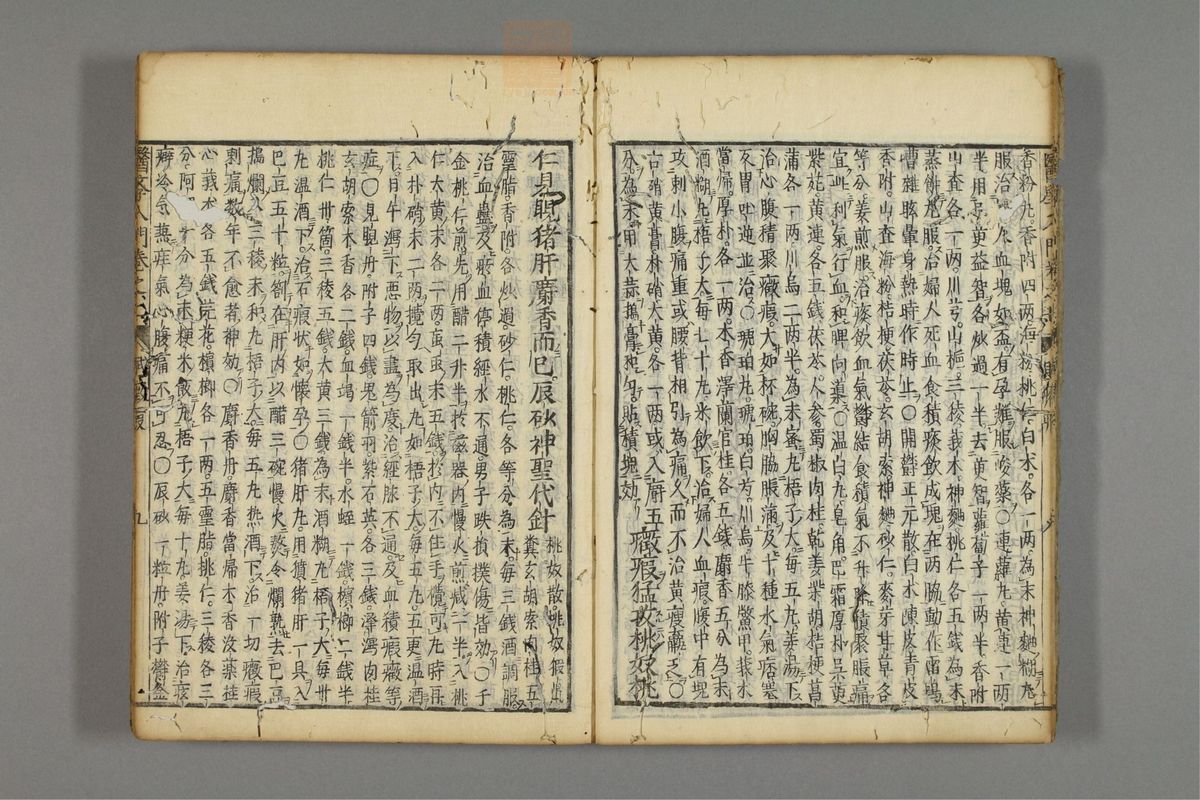 香粉丸香附四两海
服治
半用
山查各一两川芎山梔三稜莪术神麯桃仁各五錢為末
蒸餅丸服治婦人死血食積痰飲成塊在两脇動作雷鳴
嘈雜眩暈身熱時作時止〇開欝正元散白术陳皮青皮
香附山查海粉桔梗茯苓玄胡索神麯砂仁麥芽甘草各
等分姜煎服治痰飲血氣欝結食積氣不升降積聚脹痛
宜此利氣行血和脾向導〇温白丸皂角巴霜厚朴吳萸
紫菀黄連各五錢茯苓人参蜀椒肉桂乾姜柴胡桔梗菖
蒲各一两川烏二两半為末蜜丸梧子大每五丸姜湯下
治心腹積聚癥瘕大如杯碗胸脇脹滿及十種水氣痞塞
反胃吐逆並治〇琥珀丸琥珀白芍川烏牛膝鱉甲莪术
當歸厚朴各一两木香澤蘭官桂各五錢麝香五分為末
酒糊丸梧子大每七十丸米飲下治婦人血瘕腹中有塊
攻刺小腹痛重或腰背相引為痛久而不治黄瘦羸乏〇
硝黄膏朴硝大黄各一两或入麝五
分為末用大蒜搗膏和勻貼積塊効 癥瘕猛攻桃奴桃
仁見睍猪肝麝香而已辰砂神聖代針 桃奴散桃奴豭鼠
糞玄胡索肉桂五
靈脂香附各炒過砂仁桃仁各等分為末每三錢酒調服
治血蠱及瘀血停積經水不通男子跌損撲傷皆効〇千
金桃仁煎先用醋二升半於磁器内慢火煎减一半入桃
仁大黄末各二两虻虫末五錢於内不住手攪可丸時再
入朴硝末二两攪勻取出丸如梧子大每五丸五更温酒
下日午瀉下悪物以盡為度治經脉不通及血積癥瘕等
症〇見睍丹附子四錢鬼箭羽紫石英各三錢澤瀉肉桂
玄胡索木香各二錢血竭一錢半水蛭一錢檳榔二錢半
桃仁卅箇三稜五錢大黄三錢為末酒糊丸梧子大每卅
丸温酒下治石瘕狀如懷孕〇猪肝丸用豶猪肝一具入
巴豆五十粒劄在肝内以醋三碗慢火熬令爛熟去巴豆
搗爛入三稜末和丸梧子大每五丸熱酒下治一切癥瘕
刺痛数年不愈者神効〇麝香丹麝香當歸木香沒薬桂
心莪术各五錢芫花檳榔各一两五靈脂桃仁三稜各三
分阿 十分為末粳米飯丸梧子大每十丸姜湯下治痃
癖冷氣蒸疰氣心腹痛不可忍〇辰砂一粒丹附子欝金
醫學入門卷
九